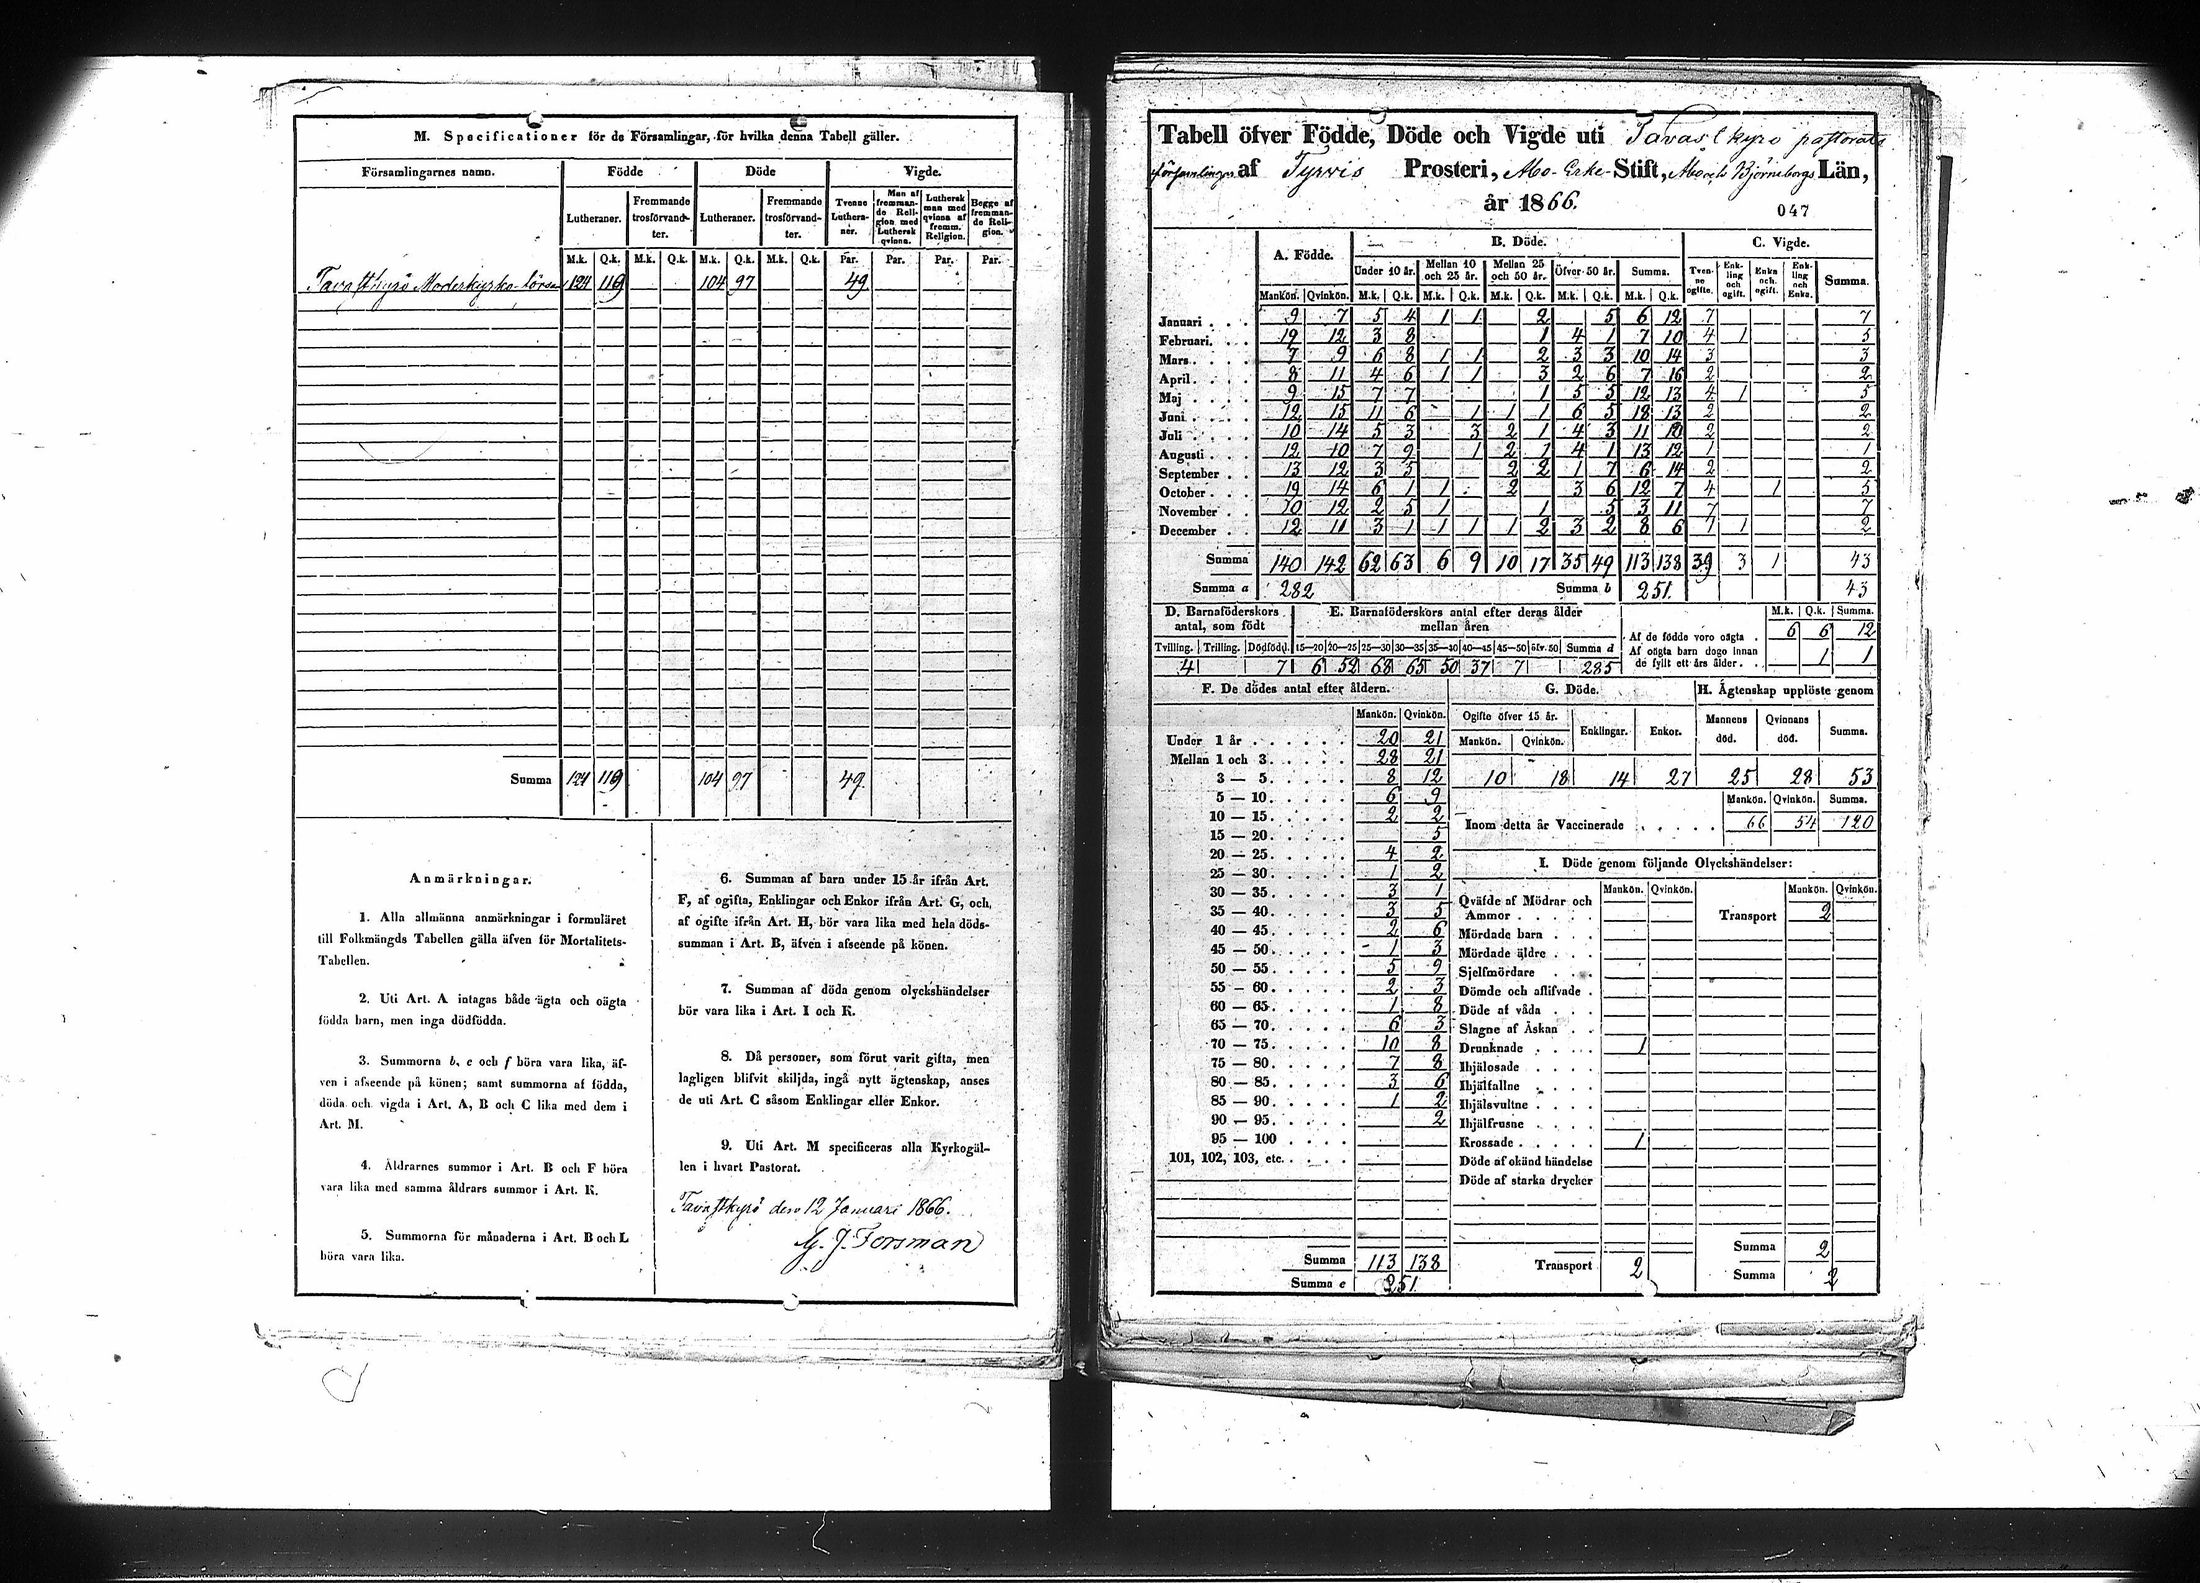 M. Specificationer för de Församlingar, för hvilka denna Tabell gäller.
Församlingarnes namn. Födde Döde Vigde.
Lutheraner. Fremmande trosförvandter. Lutheraner. Fremmande trosförvandter. Tvenne Lutheraner. Man af fremmande Religion med Luthersk qvinna. Luthersk man med qvinna af fremm. Religion. Begge af fremmande Religion.
M.k. Q.k. M.k. Q.k. M.k. Q.k. M.k. Q.k. Par. Par. Par. Par.
Tavastkyrö Moderkyrko-förs 124 119 104 97 49
Summa 124 119 104 97 49
Anmärkningar.
1. Alla allmänna anmärkningar i formuläret
till Folkmängds Tabellen gälla äfven för Mortalitets-
Tabellen.
2. Uti Art. A intagas både ägta och oägta
födda barn, men inga dödfödda.
3. Summorna b, e och f böra vara lika, äf-
ven i afseende på könen; samt summorna af födda,
döda och vigda i Art. A, B och C lika med dem i
Art. M.
4. Åldrarnes summor i Art. B och F böra
vara lika med samma åldrars summor i Art. K.
5. Summorna för månaderna i Art. B och L
böra vara lika.
6. Summan af barn under 15 år ifrån Art.
F, af ogifta, Enklingar och Enkor ifrån Art. G, och,
af ogifte ifrån Art. H, bör vara lika med hela döds-
summan i Art. B, äfven i afseende på könen.
7. Summan af döda genom olyckshändelser
bör vara lika i Art. I och K.
8. Då personer, som förut varit gifta, men
lagligen blifvit skiljda, ingå nytt ägtenskap, anses
de uti Art. C såsom Enklingar eller Enkor.
9. Uti Art. M specificeras alla Kyrkogäl-
len i hvart Pastorat.
Tavastkyrö den 12 Januari 1866.
G. J. Forsman
Tabell öfver Födde, Döde och Vigde uti Tavastkyro pastorats
församlingar af Tyrvis Prosteri, Åbo Erke- Stift, Åbo och Björneborgs Län,
år 1866.
047
A. Födde. B. Döde. C. Vigde.
Under 10 år. Mellan 10 och 25 år. Mellan 25 och 50 år. Öfver 50 år. Summa. Tvenne ogifte. Enkling och ogift. Enka och ogift. Enkling och Enka. Summa.
Mankön. Qvinkön. M.k. Q.k. M.k. Q.k. M.k. Q.k. M.k. Q.k. M.k. Q.k.
Januari . . . 9 7 5 4 1 1 2 5 6 12 7 7
Februari. . . 19 12 3 8 1 4 1 7 10 4 1 5
Mars . . . . 7 9 6 8 1 1 2 3 3 10 14 3 3
April . . . . 8 11 4 6 1 1 3 2 6 7 16 2 2
Maj . . . . 9 15 7 7 1 5 5 12 13 4 1 5
Juni . . . . 12 15 11 6 1 1 1 6 5 18 13 2 2
Juli . . . . 10 14 5 3 3 2 1 4 3 11 10 2 2
Augusti . . . 12 10 7 9 1 2 1 4 1 13 12 1 1
September . . 13 12 3 5 2 2 1 7 6 14 2 2
October . . . 19 14 6 1 1 2 3 6 12 7 4 1 5
November . . 10 12 2 5 1 1 5 3 11 7 7
December . . 12 11 3 1 1 1 1 2 3 2 8 6 7 1 2
Summa 140 142 62 63 6 9 10 17 35 49 113 138 39 3 1 43
Summa a 282 Summa b 251. 43
D. Barnaföderskors antal, som födt
Tvilling. Trilling. Dödfödd.
4 7
E. Barnaföderskors antal efter deras ålder mellan åren
15—20 20—25 25—30 30—35 35—40 40—45 45—50 öfv. 50 Summa d
6 52 68 65 50 37 7 285
M.k. Q.k. Summa.
Af de födde voro oägta . 6 6 12
Af oägta barn dogo innan
de fyllt ett års ålder . . 1 1
F. De dödes antal efter åldern.
Mankön. Qvinkön.
Under 1 år . . . . . . 20 21
Mellan 1 och 3 . . . . . 28 21
3 — 5. . . . . 8 12
5 — 10. . . . . 6 9
10 — 15. . . . . 2 2
15 — 20. . . . . 5
20 — 25. . . . . 4 2
25 — 30. . . . . 1 2
30 — 35. . . . . 3 1
35 — 40. . . . . 3 5
40 — 45. . . . . 2 6
45 — 50. . . . . 1 3
50 — 55. . . . . 5 9
55 — 60. . . . . 2 3
60 — 65. . . . . 1 8
65 — 70. . . . . 6 3
70 — 75. . . . . 10 8
75 — 80. . . . . 7 8
80 — 85. . . . . 3 6
85 — 90. . . . . 1 2
90 — 95. . . . . 2
95 — 100 . . . .
101, 102, 103, etc. . . . .
Summa 113 138
Summa e 251.
G. Döde.
Ogifte öfver 15 år. Enklingar. Enkor.
Mankön. Qvinkön.
10 18 14 27
H. Ägtenskap upplöste genom
Mannens död. Qvinnans död. Summa.
25 28 53
Mankön. Qvinkön. Summa.
Inom detta år Vaccinerade . . . . . 66 54 120
I. Döde genom följande Olyckshändelser:
Mankön. Qvinkön. Mankön. Qvinkön.
Qväfde af Mödrar och
Ammor . . . . .
Transport 2
Mördade barn . . .
Mördade äldre . . .
Sjelfmördare . . .
Dömde och aflifvade .
Döde af våda . . .
Slagne af Åskan . .
Drunknade . . . . . 1
Ihjälosade . . . .
Ihjälfallne . . . .
Ihjälsvultne . . . .
Ihjälfrusne . . . .
Krossade . . . . . 1
Döde af okänd händelse
Döde af starka drycker
Transport 2
Summa 2
Summa 2